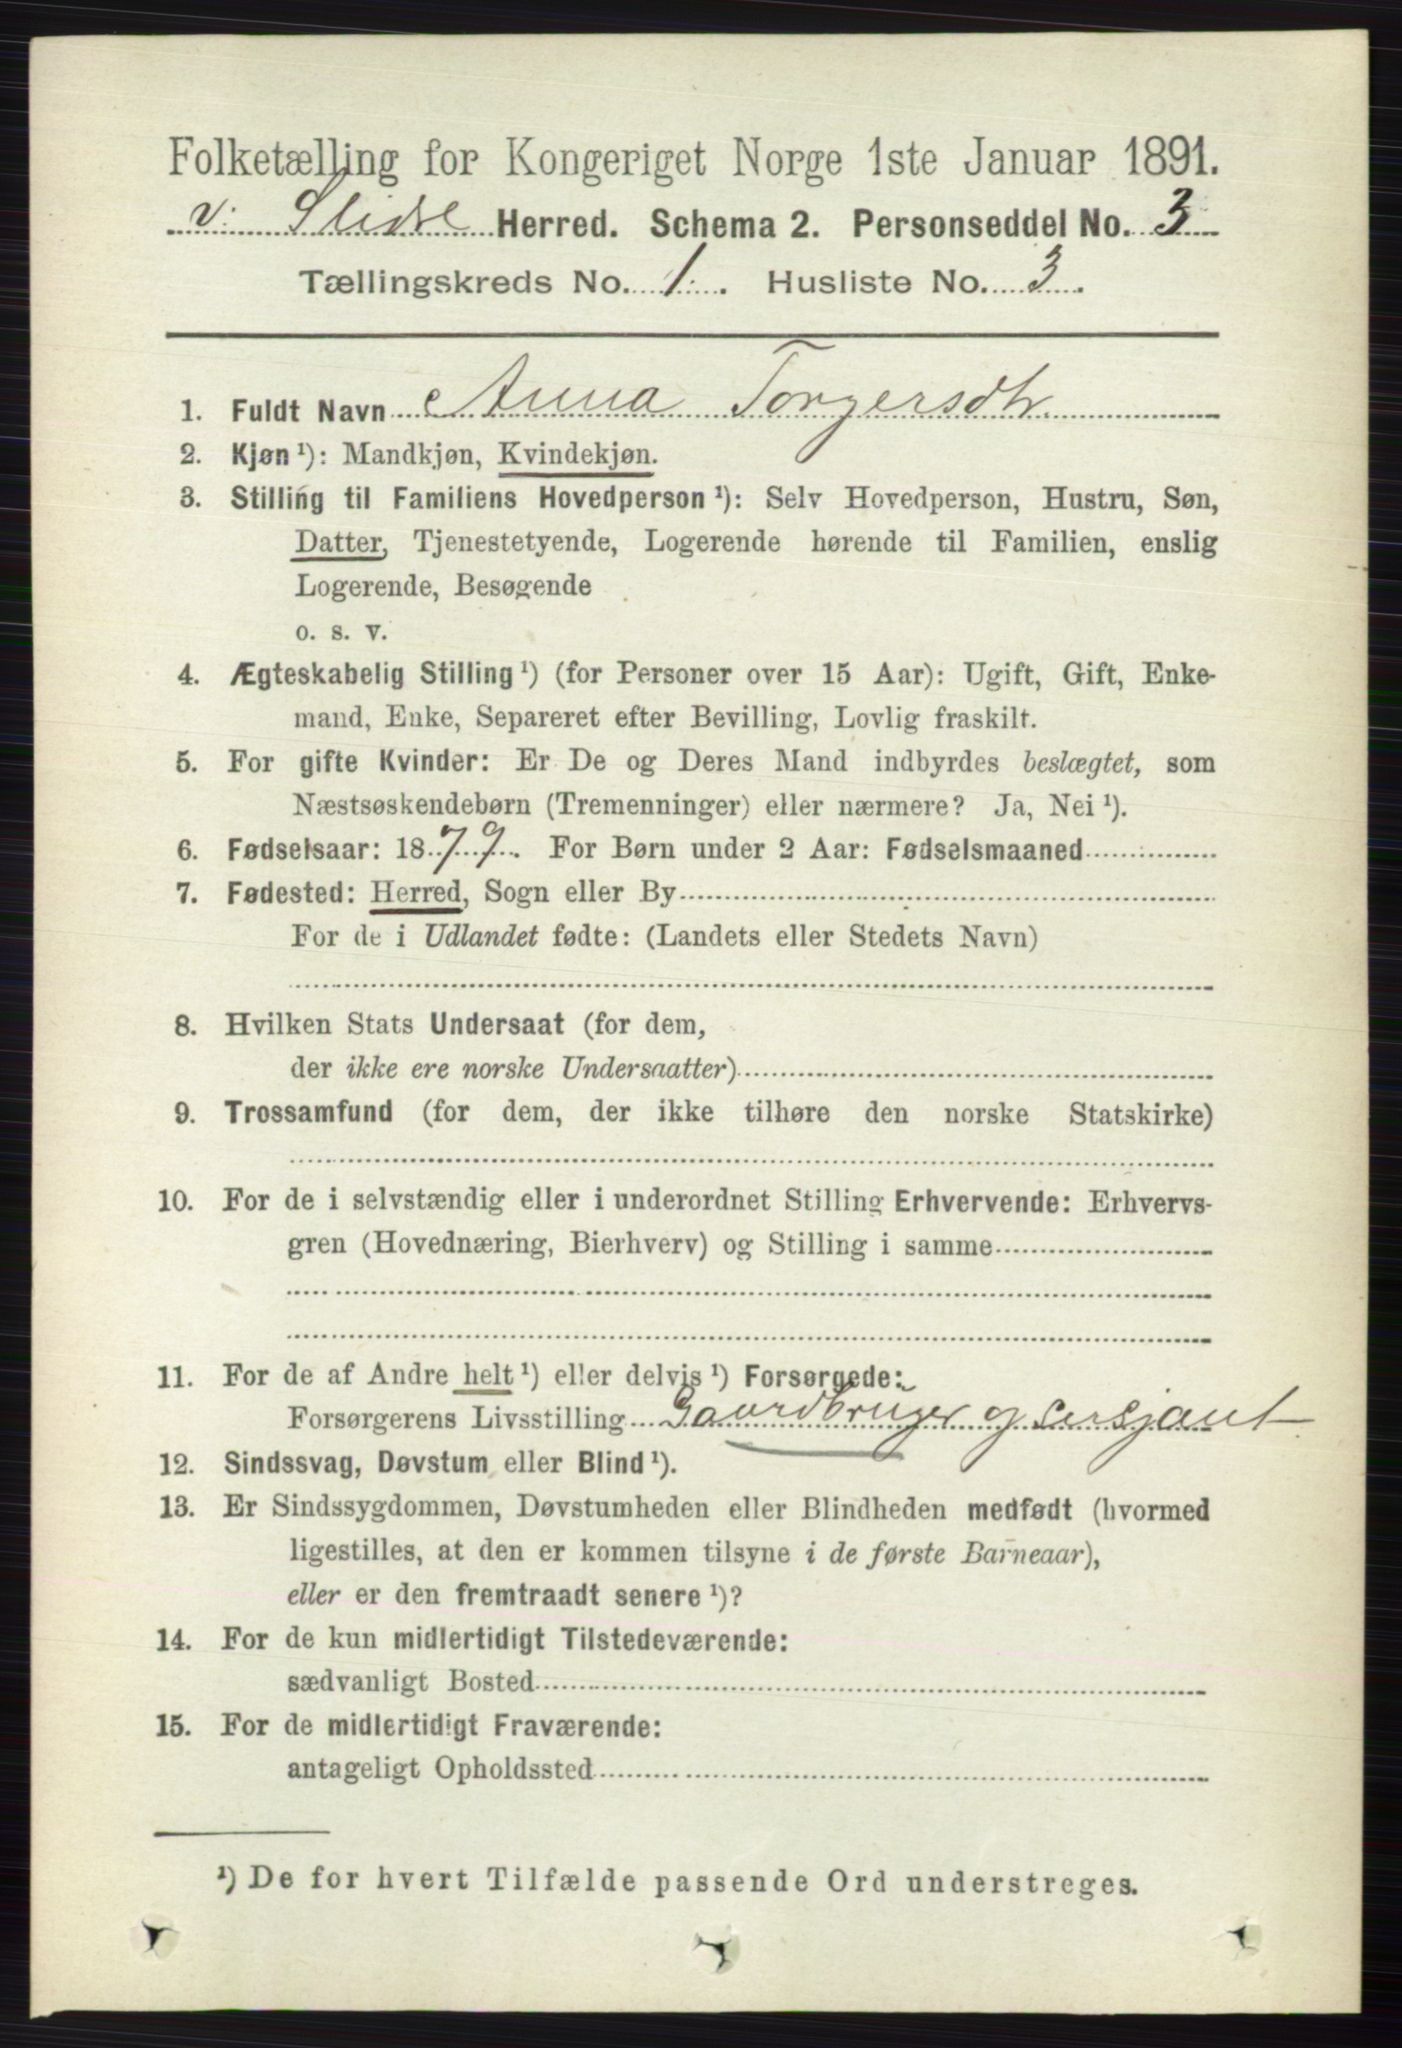 Folketælling for Kongeriget Norge 1ste Januar 1891.
V. Slidre Herred. Schema 2. Personseddel No. 3
Tællingskreds No. 1. Husliste No. 3.
1. Fuldt Navn Anna Torgersdtr.
2. Kjøn ¹): Mandkjøn, Kvindekjøn.
3. Stilling til Familiens Hovedperson ¹): Selv Hovedperson, Hustru, Søn,
Datter, Tjenestetyende, Logerende hørende til Familien, enslig
Logerende, Besøgende
o. s. v.
4. Ægteskabelig Stilling ¹) (for Personer over 15 Aar): Ugift, Gift, Enke-
mand, Enke, Separeret efter Bevilling, Lovlig fraskilt.
5. For gifte Kvinder: Er De og Deres Mand indbyrdes beslægtet, som
Næstsøskendebørn (Tremenninger) eller nærmere? Ja, Nei ¹).
6. Fødselsaar: 1879. For Børn under 2 Aar: Fødselsmaaned
7. Fødested: Herred, Sogn eller By
For de i Udlandet fødte: (Landets eller Stedets Navn)
8. Hvilken Stats Undersaat (for dem,
der ikke ere norske Undersaatter)
9. Trossamfund (for dem, der ikke tilhøre den norske Statskirke)
10. For de i selvstændig eller i underordnet Stilling Erhvervende: Erhvervs-
gren (Hovednæring, Bierhverv) og Stilling i samme
11. For de af Andre helt ¹) eller delvis ¹) Forsørgede:
Forsørgerens Livsstilling Gaardbruger og sersjant
12. Sindssvag, Døvstum eller Blind ¹).
13. Er Sindssygdommen, Døvstumheden eller Blindheden medfødt (hvormed
ligestilles, at den er kommen tilsyne i de første Barneaar),
eller er den fremtraadt senere ¹)?
14. For de kun midlertidigt Tilstedeværende:
sædvanligt Bosted
15. For de midlertidigt Fraværende:
antageligt Opholdssted
¹) De for hvert Tilfælde passende Ord understreges.